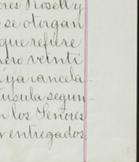 res Rosell y
se otorgan
que refiere
nero veinte
ya cancela-
áusula segun-
n los Señores
entregados